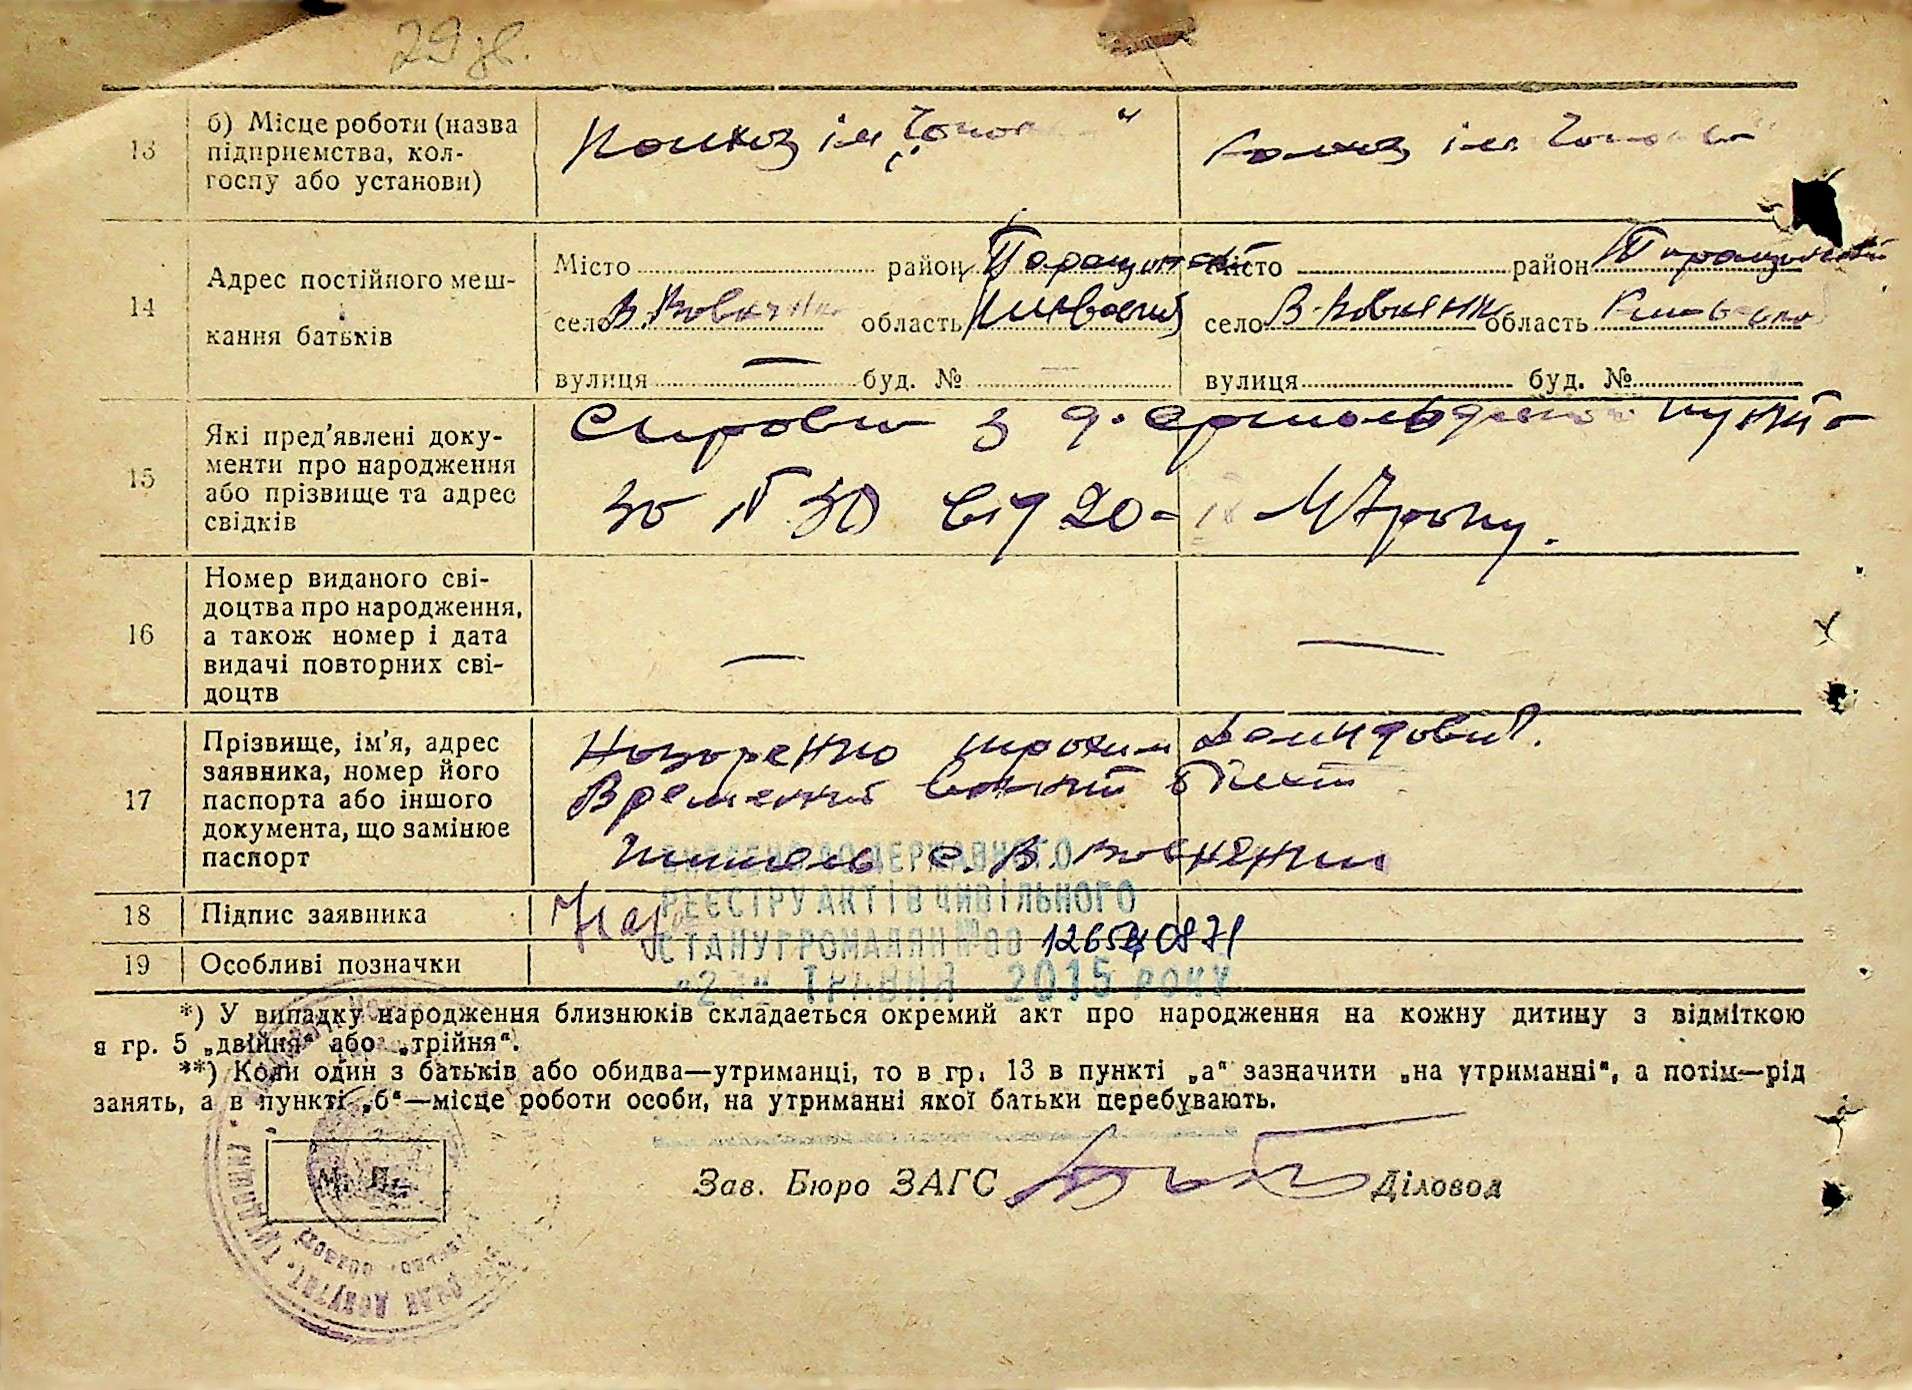 29 зв.
13 б) Місце роботи (назва
підприємства, кол-
госпу або установи)
Колхоз ім
Колхоз ім.
14 Адрес постійного меш-
кання батьків
Місто район Таращанск Місто район Таращанский
село В. Вовнянка область Київська село В. Вовнянка область Київська
вулиця — буд. № — вулиця буд. №
15 Які пред'явлені доку-
менти про народження
або прізвище та адрес
свідків
Справка з пункта
за № 30 від 20- 47 року.
16 Номер виданого сві-
доцтва про народження,
а також номер і дата
видачі повторних сві-
доцтв
— —
17 Прізвище, ім'я, адрес
заявника, номер його
паспорта або іншого
документа, що замінює
паспорт
Назаренко Трохим Демидович.
Временний воєнний білет
житель с. В Вовнянки
18 Підпис заявника Наз
19 Особливі позначки
ВНЕСЕНО ДО ДЕРЖАВНОГО
РЕЄСТРУ АКТІВ ЦИВІЛЬНОГО
СТАНУ ГРОМАДЯН № 00
ТРАВНЯ 2015 РОКУ
*) У випадку народження близнюків складається окремий акт про народження на кожну дитину з відміткою
в гр. 5 „двійня“ або „трійня“.
**) Коли один з батьків або обидва—утриманці, то в гр. 13 в пункті „а“ зазначити „на утриманні“, а потім—рід
занять, а в пункті „б“—місце роботи особи, на утриманні якої батьки перебувають.
М. П.
Зав. Бюро ЗАГС Діловод